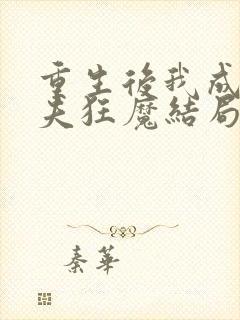 重生後我成
夫狂魔結局
秦華